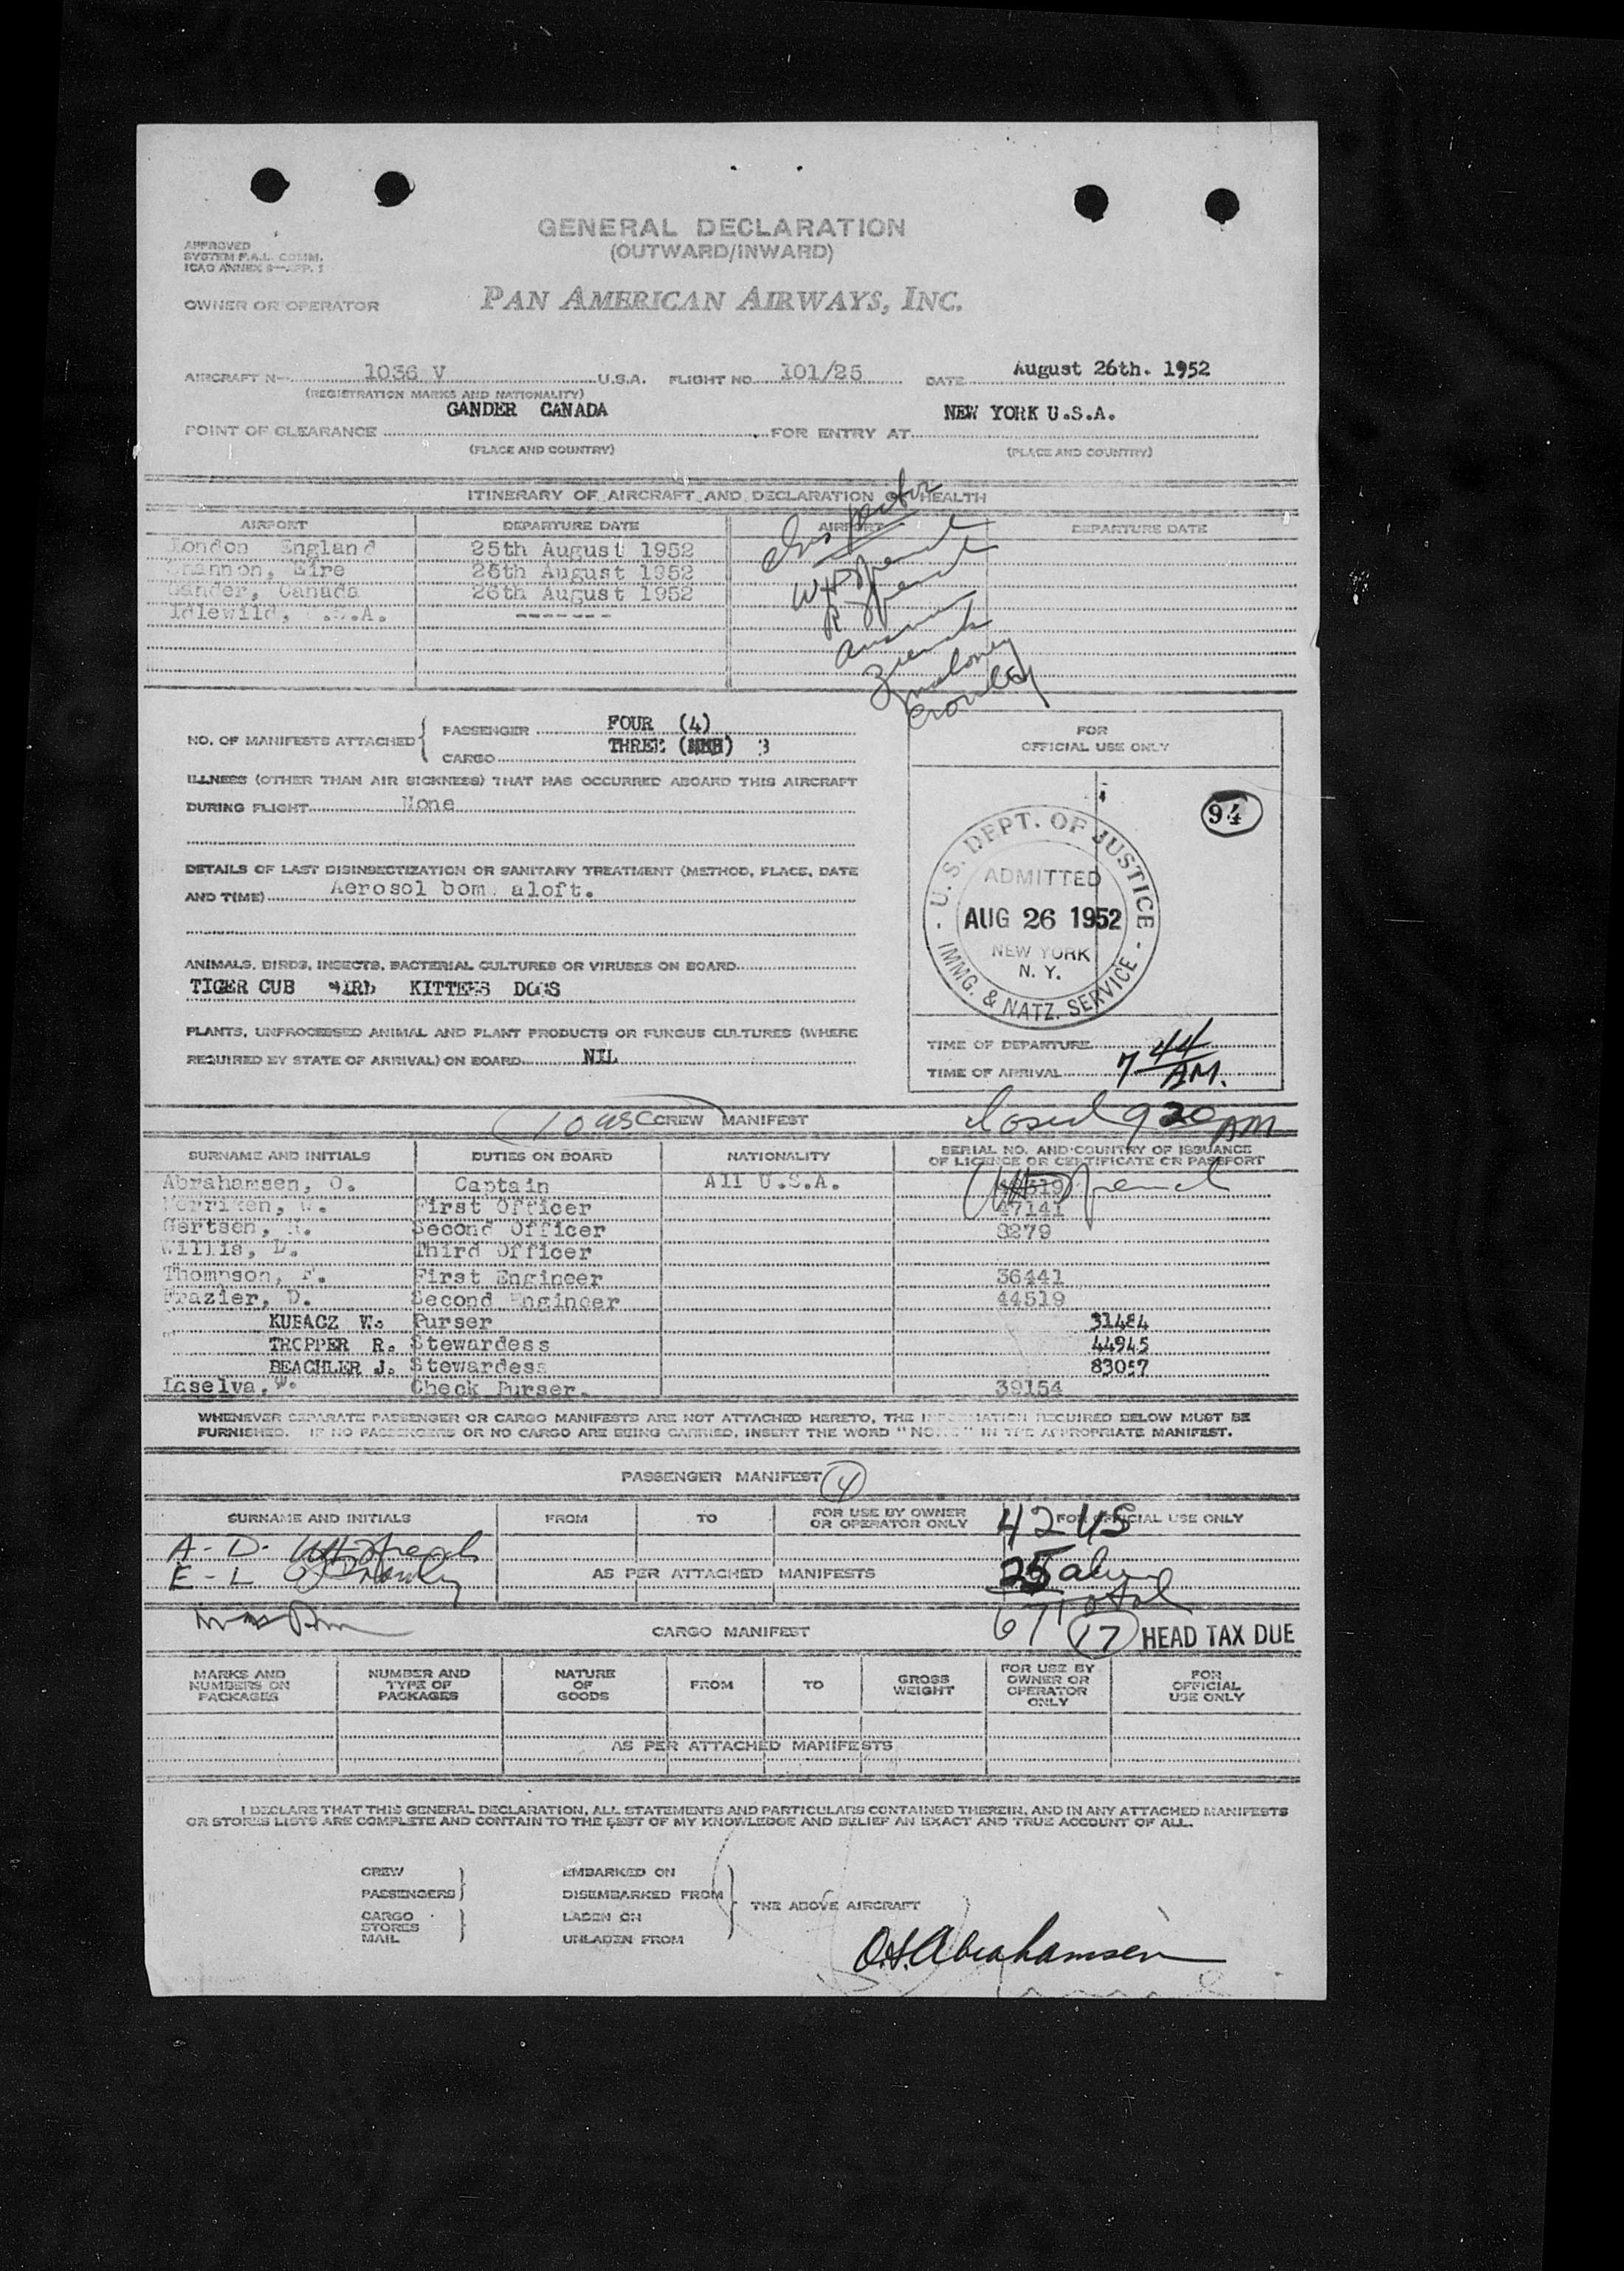 GENERAL DECLARATION
(OUTWARD/INWARD)
APPROVED
SYSTEM F.A.L. COMM.
ICAO ANNEX 9—APP. 1
OWNER OR OPERATOR PAN AMERICAN AIRWAYS, INC.
AIRCRAFT N— 1036 V U.S.A. FLIGHT NO. 101/25 DATE August 26th. 1952
(REGISTRATION MARKS AND NATIONALITY)
GANDER CANADA NEW YORK U.S.A.
POINT OF CLEARANCE FOR ENTRY AT
(PLACE AND COUNTRY) (PLACE AND COUNTRY)
ITINERARY OF AIRCRAFT AND DECLARATION OF HEALTH
AIRPORT DEPARTURE DATE AIRPORT DEPARTURE DATE
London England 25th August 1952
Shannon, Eire 26th August 1952
Gander, Canada 26th August 1952
Idlewild, U.S.A. -------
Maloney
Crowley
NO. OF MANIFESTS ATTACHED PASSENGER FOUR (4)
CARGO THREE 3
ILLNESS (OTHER THAN AIR SICKNESS) THAT HAS OCCURRED ABOARD THIS AIRCRAFT
DURING FLIGHT None
DETAILS OF LAST DISINSECTIZATION OR SANITARY TREATMENT (METHOD, PLACE, DATE
AND TIME) Aerosol bom aloft.
ANIMALS, BIRDS, INSECTS, BACTERIAL CULTURES OR VIRUSES ON BOARD
TIGER CUB BIRD KITTENS DOGS
PLANTS, UNPROCESSED ANIMAL AND PLANT PRODUCTS OR FUNGUS CULTURES (WHERE
REQUIRED BY STATE OF ARRIVAL) ON BOARD NIL
FOR
OFFICIAL USE ONLY
94
U.S. DEPT. OF JUSTICE
ADMITTED
AUG 26 1952
NEW YORK
N. Y.
IMMG. & NATZ. SERVICE
TIME OF DEPARTURE
TIME OF ARRIVAL 7 44 AM.
10 USC CREW MANIFEST closed 9 20 AM
SURNAME AND INITIALS DUTIES ON BOARD NATIONALITY SERIAL NO. AND COUNTRY OF ISSUANCE
OF LICENCE OR CERTIFICATE OR PASSPORT
Abrahamsen, O. Captain All U.S.A.
Merriken, W. First Officer 47141
Gertsen, H. Second Officer 8279
Willis, D. Third Officer
Thompson, F. First Engineer 36441
Frazier, D. Second Engineer 44519
KUBACZ W. Purser 31484
TROPPER R. Stewardess 44945
BEACHLER J. Stewardess 83057
Laselva, Check Purser. 39154
WHENEVER SEPARATE PASSENGER OR CARGO MANIFESTS ARE NOT ATTACHED HERETO, THE INFORMATION REQUIRED BELOW MUST BE
FURNISHED. IF NO PASSENGERS OR NO CARGO ARE BEING CARRIED, INSERT THE WORD "NONE" IN THE APPROPRIATE MANIFEST.
PASSENGER MANIFEST 4
SURNAME AND INITIALS FROM TO FOR USE BY OWNER
OR OPERATOR ONLY FOR OFFICIAL USE ONLY
42 US
A - D.
E - L
AS PER ATTACHED MANIFESTS
25 alien
67 Total
CARGO MANIFEST
17 HEAD TAX DUE
MARKS AND
NUMBERS ON
PACKAGES
NUMBER AND
TYPE OF
PACKAGES
NATURE
OF
GOODS
FROM
TO
GROSS
WEIGHT
FOR USE BY
OWNER OR
OPERATOR
ONLY
FOR
OFFICIAL
USE ONLY
AS PER ATTACHED MANIFESTS
I DECLARE THAT THIS GENERAL DECLARATION, ALL STATEMENTS AND PARTICULARS CONTAINED THEREIN, AND IN ANY ATTACHED MANIFESTS
OR STORES LISTS ARE COMPLETE AND CONTAIN TO THE BEST OF MY KNOWLEDGE AND BELIEF AN EXACT AND TRUE ACCOUNT OF ALL.
CREW EMBARKED ON
PASSENGERS DISEMBARKED FROM
THE ABOVE AIRCRAFT
CARGO LADEN ON
STORES
MAIL UNLADEN FROM
O.H. Abrahamsen